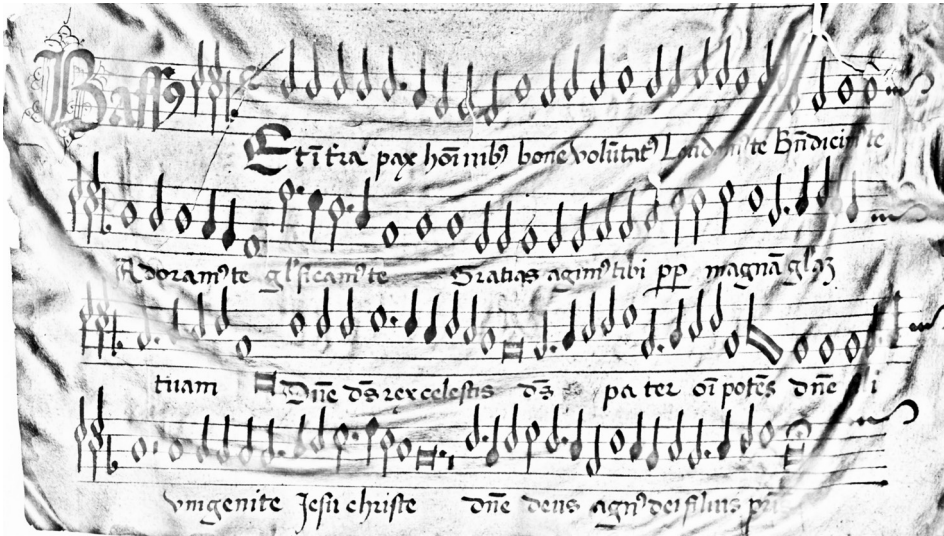 Bassꝰ
Et ī t̄ra pax hoī nibꝫ bone volūtatꝭ Laudamꝰ te Bn̄dicimꝰ te
Adoramꝰ te gl̄ficamꝰ te Gratias agimꝰ tibi ꝓp magnā gl̄aꝫ
tuam Dn̄e ds̄ rex celestis ds̄ pa ter oī potēs dn̄e
vnigenite Jesu christe dn̄e deus agnꝰ dei filius